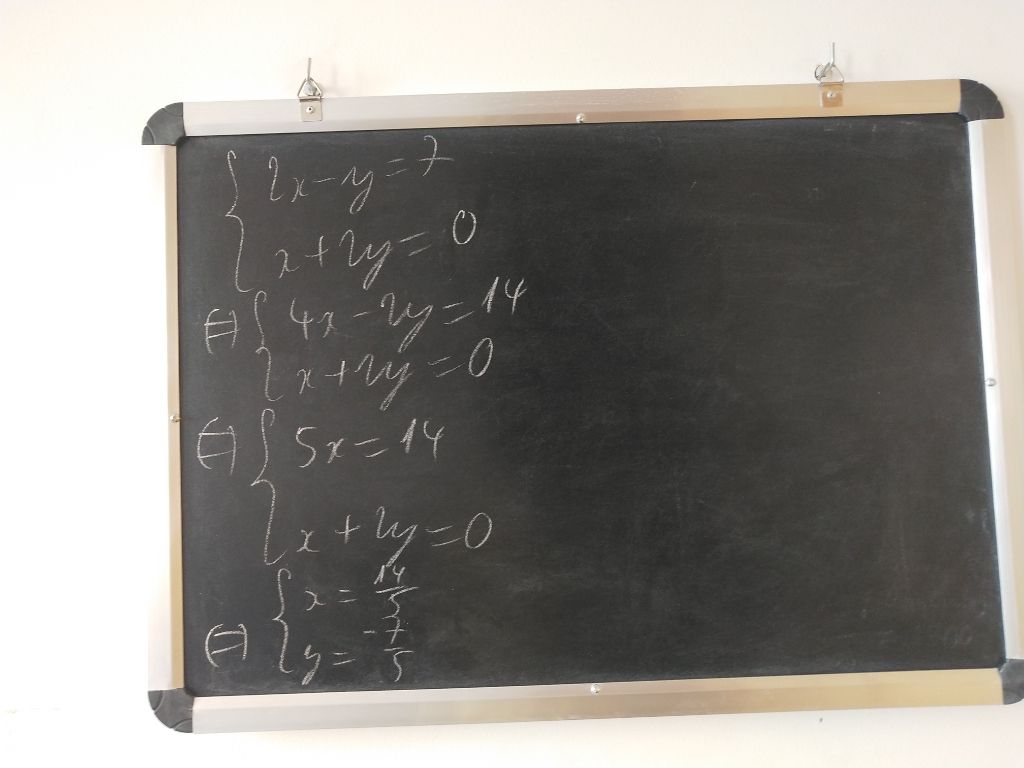 { 2x - y = 7
x + 2y = 0
⇔ { 4x - 2y = 14
x + 2y = 0
⇔ { 5x = 14
x + 2y = 0
⇔ { x = 14/5
y = -7/5